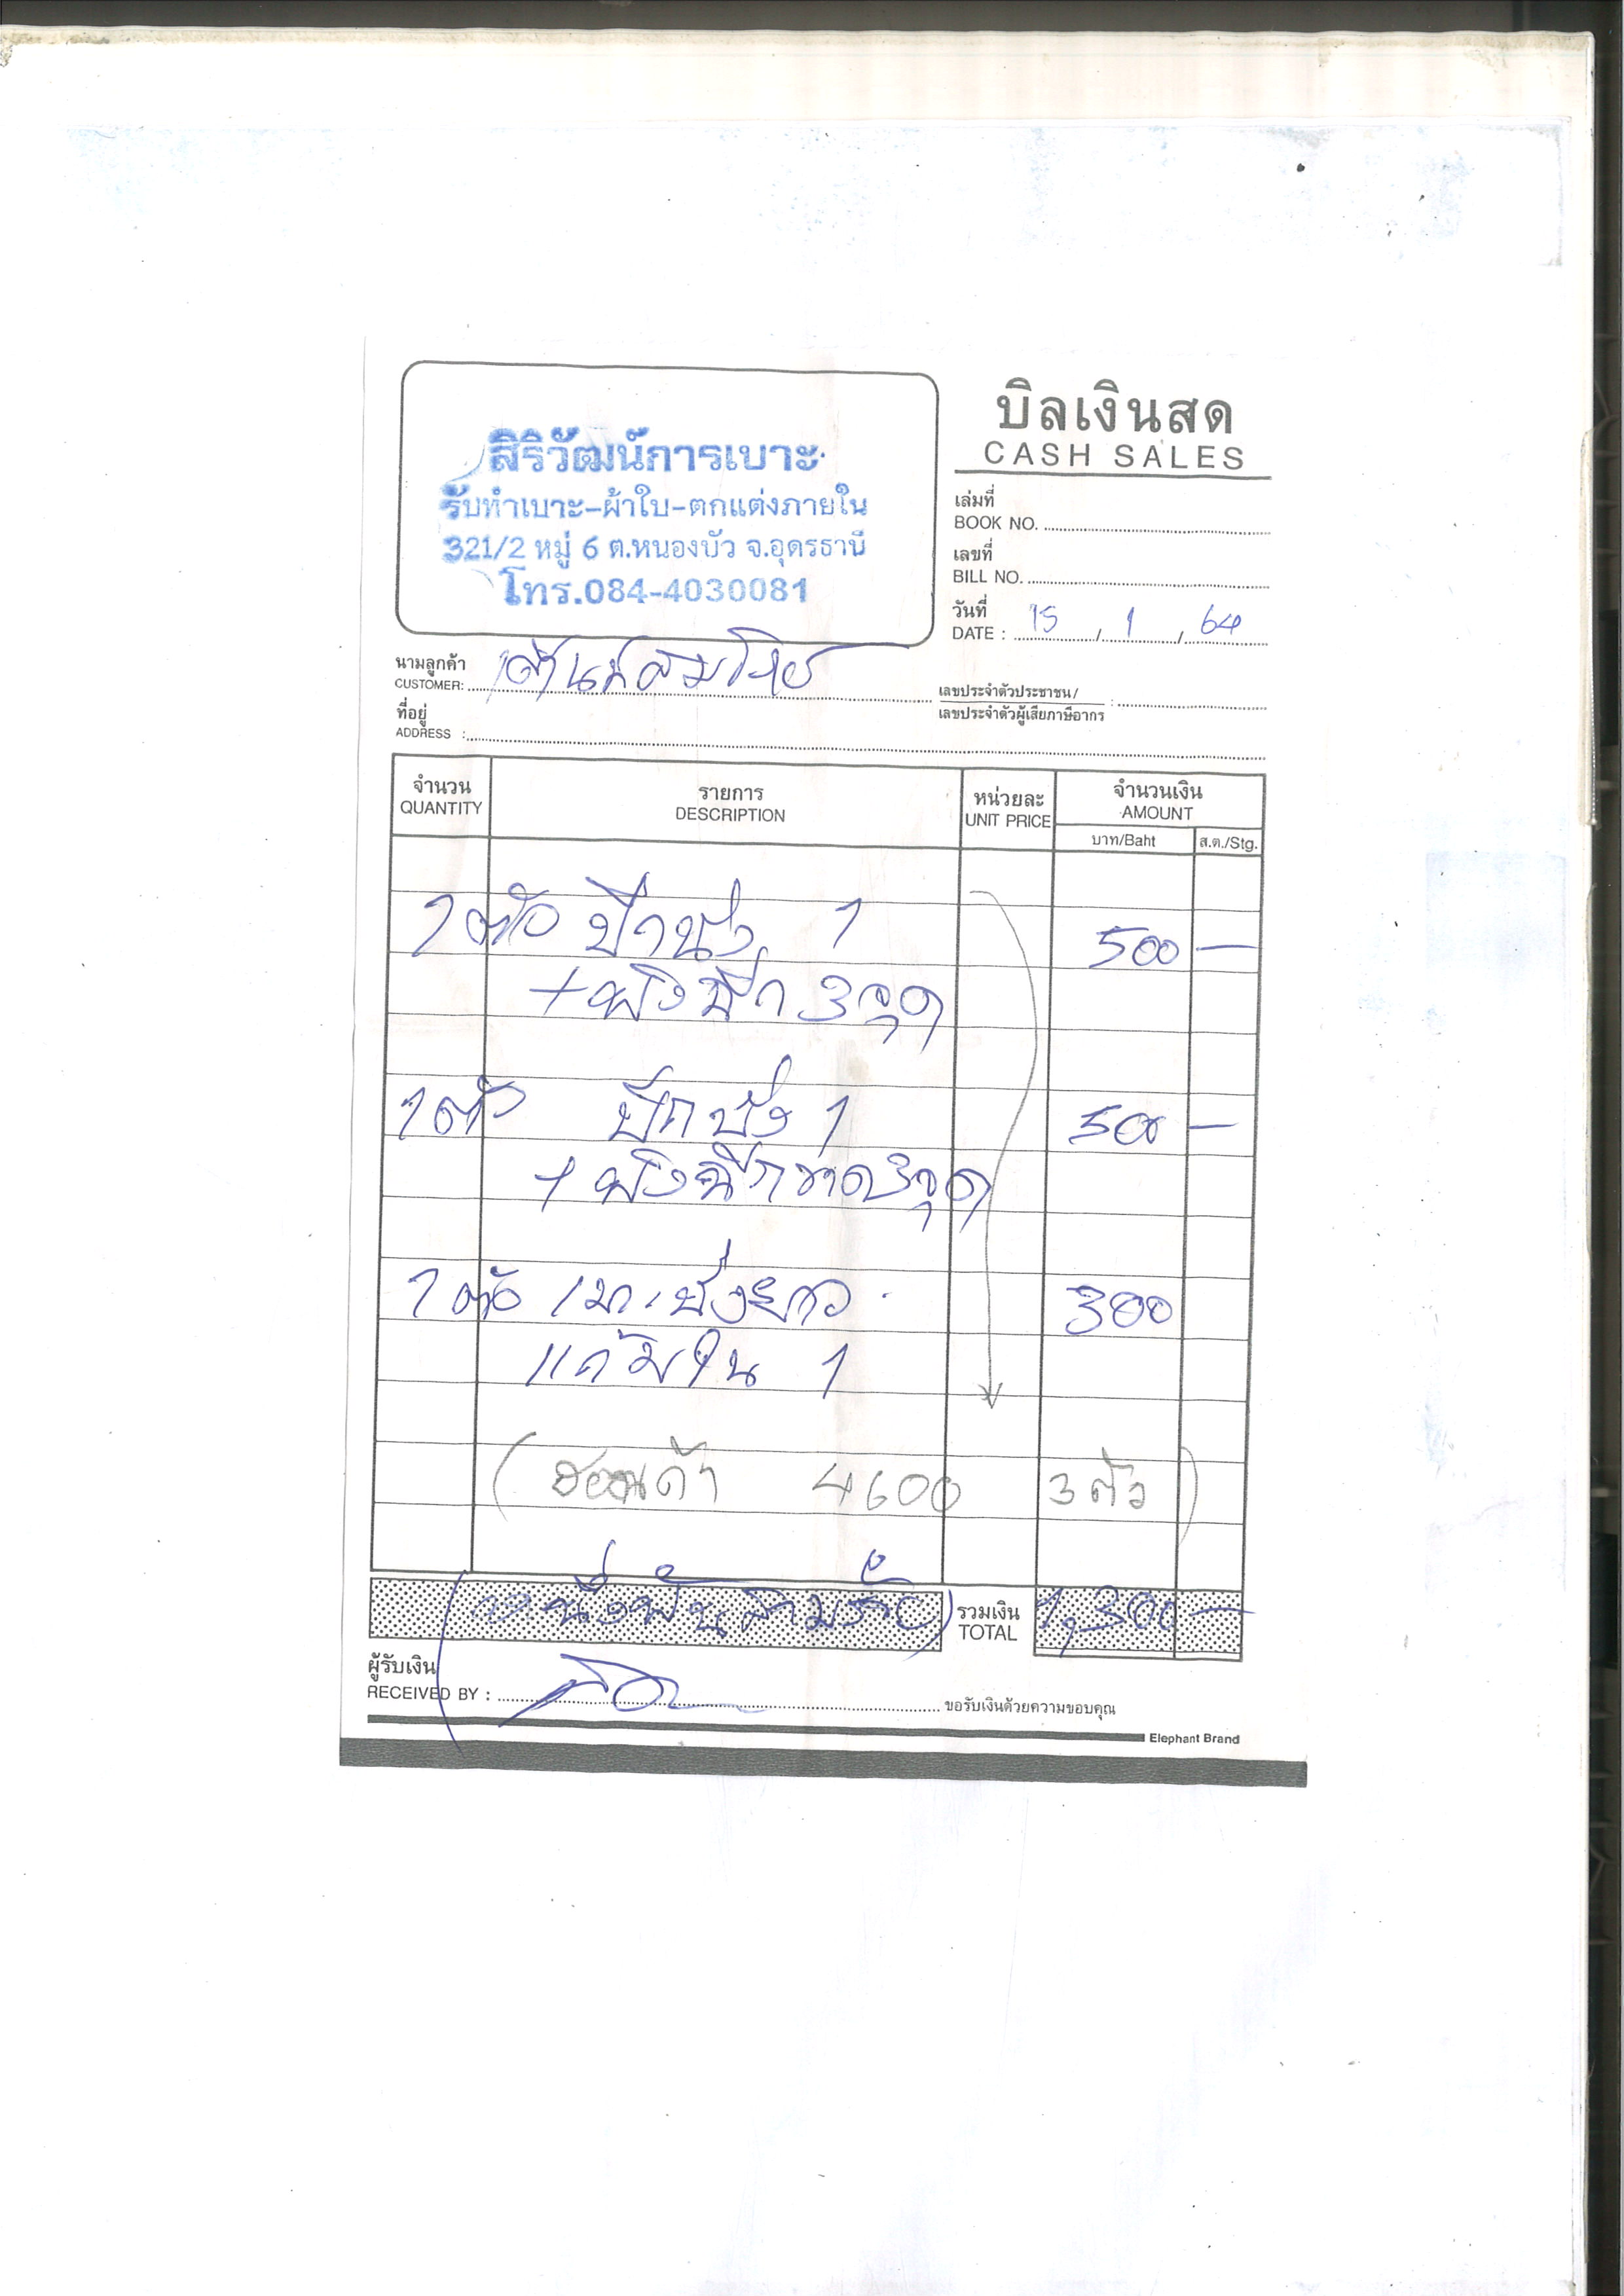 สิริวัฒน์การเบาะ
รับทำเบาะ-ผ้าใบ-ตกแต่งภายใน
321/2 หมู่ 6 ต.หนองบัว จ.อุดรธานี
โทร.084-4030081
บิลเงินสด
CASH SALES
เล่มที่
BOOK NO.
เลขที่
BILL NO.
วันที่
DATE : 15 / 1 / 64
นามลูกค้า
CUSTOMER:
เลขประจำตัวประชาชน/
เลขประจำตัวผู้เสียภาษีอากร :
ที่อยู่
ADDRESS :
จำนวน รายการ หน่วยละ จำนวนเงิน
QUANTITY DESCRIPTION UNIT PRICE AMOUNT
บาท/Baht ส.ต./Stg.
1 ตัว 1 500 —
+ 3 จุด
1 ตัว 1 500 —
+ ขาด 3 จุด
1 ตัว 300
1
( ฮอนด้า 4600 3 ตัว )
(หนึ่งพันสามร้อย) รวมเงิน 1,300 —
TOTAL
ผู้รับเงิน
RECEIVED BY : ขอรับเงินด้วยความขอบคุณ
Elephant Brand